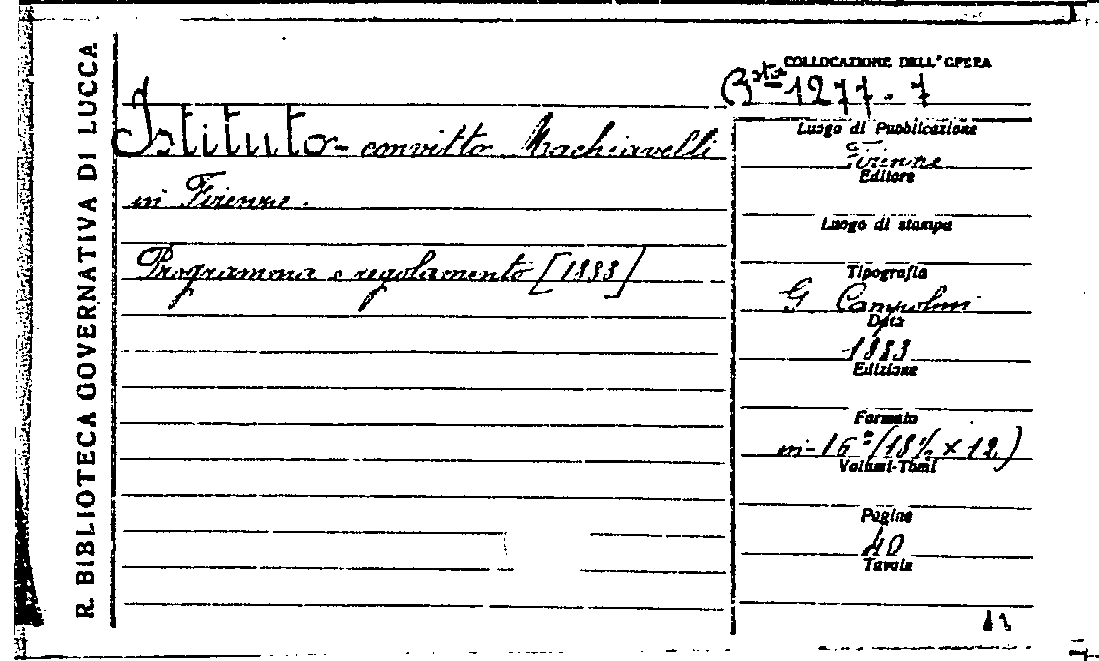 R. BIBLIOTECA GOVERNATIVA DI LUCCA
COLLOCAZIONE DELL'OPERA
Bsta 1277.7
Istituto-convitto Machiavelli
in Firenze.
Programma e regolamento [1883]
Luogo di Pubblicazione
Firenze
Editore
Luogo di stampa
Tipografia
G. Campolmi
Data
1883
Edizione
Formato
in-16° (18½ x 12)
Volumi-Tomi
Pagine
40
Tavole